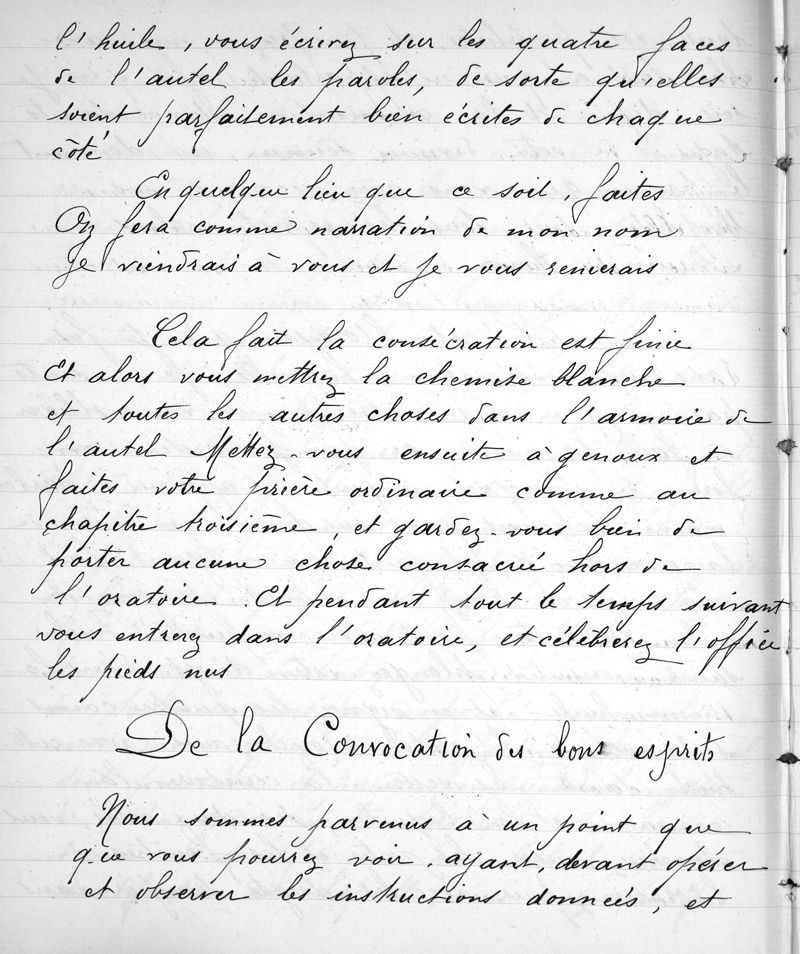 l'huile, vous écrivez sur les quatre faces
de l'autel les paroles, de sorte qu'elles
soient parfaitement bien écrites de chaque
côté
En quelque lieu que ce soit, faites
On fera comme narration de mon nom
Je viendrais à vous et Je vous renierais
Cela fait la consécration est finie
Et alors vous mettrez la chemise blanche
et toutes les autres choses dans l'armoire de
l'autel Mettez-vous ensuite à genoux et
faites votre prière ordinaire comme au
chapitre troisième, et gardez-vous bien de
porter aucune chose consacrée hors de
l'oratoire. Et pendant tout le temps suivant
vous entrerez dans l'oratoire, et célèbrerez l'office
les pieds nus
De la Convocation des bons esprits
Nous sommes parvenus à un point que
que vous pourrez voir, ayant, devant opérer
et observer les instructions données, et